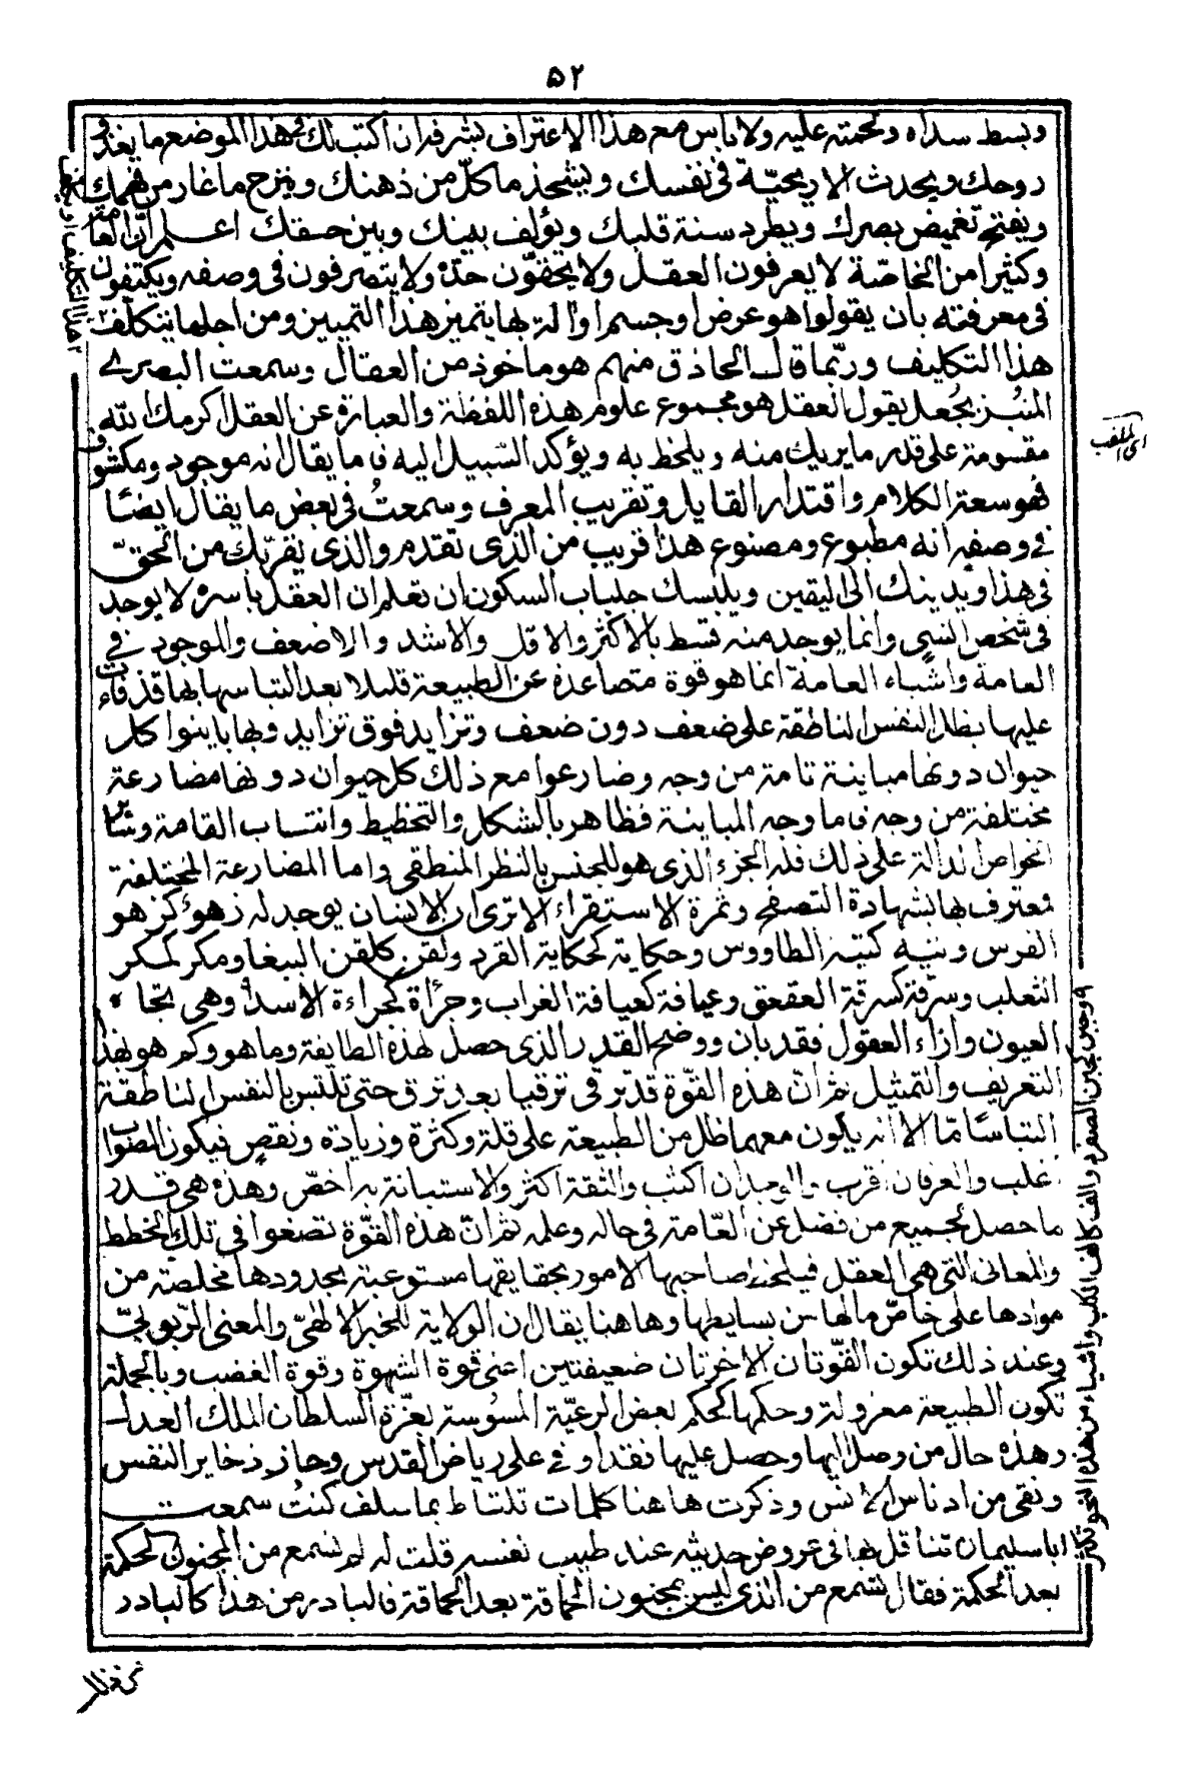 ٥٢
وبسط سداه ولحمته عليه ولا باس مع هذا الاعتراف بشرفه ان اكتب لك في هذا الموضع ما يغذو
روحك ويحدث الاريحيّة في نفسك ويشحذ ما كلّ من ذهنك وينزح ما غار من فهمك
ويفتح تغميض بصرك ويطرد سنة قلبك ويؤلف بينك وبين حقك اعلم ان العامة
وكثيرا من الخاصّة لا يعرفون العقل ولا يحقّون حدّه ولا يتصرفون في وصفه ويكتفون
في معرفته بان يقولوا هو عرض او جسم او آلة بها يتميز هذا التمييز ومن اجلها يتكلف
هذا التكليف وربّما قال الحاذق منهم هو ماخوذ من العقال وسمعت البصرى
المنبز بجُعل يقول العقل هو مجموع علوم هذه اللفظة والعبارة عن العقل اكرمك الله
مقسومة على قدر ما يريك منه ويلحظ به ويؤكد السّبيل اليه فاما يقال انه موجود ومكشوف
فهو سعة الكلام واقتدار القايل وتقريب المعرف وسمعتُ في بعض ما يقال ايضًا
في وصفه انه مطبوع ومصنوع هذا قريب من الذى تقدم والذى يقرّبك من التحقّق
في هذا ويدينك الى اليقين ويلبسك جلباب السكون ان تعلم ان العقل باسره لا يوجد
في شخص انسي وانما يوجد منه قسط بالاكثر والاقل والاشد والاضعف والموجود في
العامة واشباه العامة انما هو قوة متصاعدة عن الطبيعة قليلا بعد التباسها بها قد فات
عليها بظل النفس الناطقة على ضعف دون ضعف وتزايد فوق تزايد وبها باينوا كل
حيوان دونها مباينة تامة من وجه وضارعوا مع ذلك كل حيوان دونها مضارعة
مختلفة من وجه فاما وجه المباينة فظاهر بالشكل والتخطيط وانتساب القامة وساير
الخواص الدالة على ذلك فله الجزء الذى هو للجنس بالنظر المنطقي واما المضارعة المختلفة
فمعترف بها بشهادة التصفح وثمرة الاستقراء الا ترى ان الانسان يوجد له زهو كزهو
الفرس وتيه كتيه الطاووس وحكاية كحكاية القرد ولقن كلقن الببغا ومكر كمكر
الثعلب وسرقة كسرقة العقعق وعيافة كعيافة الغراب وجرأة كجراءة الاسد وهي تجاه
العيون وازاء العقول فقد بان ووضح القدر الذى حصل لهذه الطايفة وما هو وكم هو بهذا
التعريف والتمثيل ثم انّ هذه القوّة قد تترقى ترقيا بعد ترق حتى تلتبس بالنفس الناطقة
التباسًا مّا الا انه يكون معهما ظل من الطبيعة على قلة وكثرة وزيادة ونقص فيكون الصواب
اغلب والعرفان اقرب والوجدان اكثب والثقة اكثر والاستبانة به اخصّ وهذه هي قدر
ما حصل لجميع من فضل عن العّامة في حاله وعلمه ثم انّ هذه القوّة تصغوا في تلك الخطط
والمعاني التى هي العقل فيلحظ صاحبها الامور بحقايقها مستوعبة بحدودها مخلصة من
موادها على خاصّ ما لها من بسايطها وهاهنا يقال ان الولاية للخبر الالهىّ والمعنى الرّبوبىّ
وعند ذلك تكون القوّتان الاخرتان ضعيفتين اعنى قوة الشهوة وقوة الغضب وبالجملة
تكون الطبيعة معزولة وحكمها كحكم بعض الرعيّة المسوُسة بعزّة السلطان الملك العدل
وهذه حال من وصل اليها وحصل عليها فقد اوفى على رياض القدس وحاز ذخاير النفس
ونقى من ادناس الانس وذكرت هاهنا كلمات تلتاط بما سلف كنتُ سمعت
اباسليمان تناقل بها في عروض حديثه عند طبيب نفسه قلت له لم نسمع من المجنون الحكمة
بعد الحكمة فقال نسمع من الذى ليس بمجنون الحماقة بعد الحماقة فالبادر من هذا كالبادر
اى الملقب
وجبن كجبن الصفرد والف كالف الكلب واشياء من هذه النحو